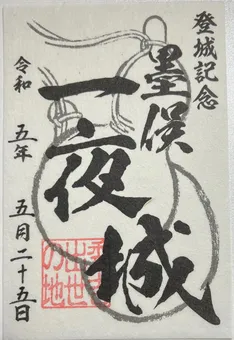 登城記念
墨俣
一夜城
令和 五年 五月二十五日
出世
の地